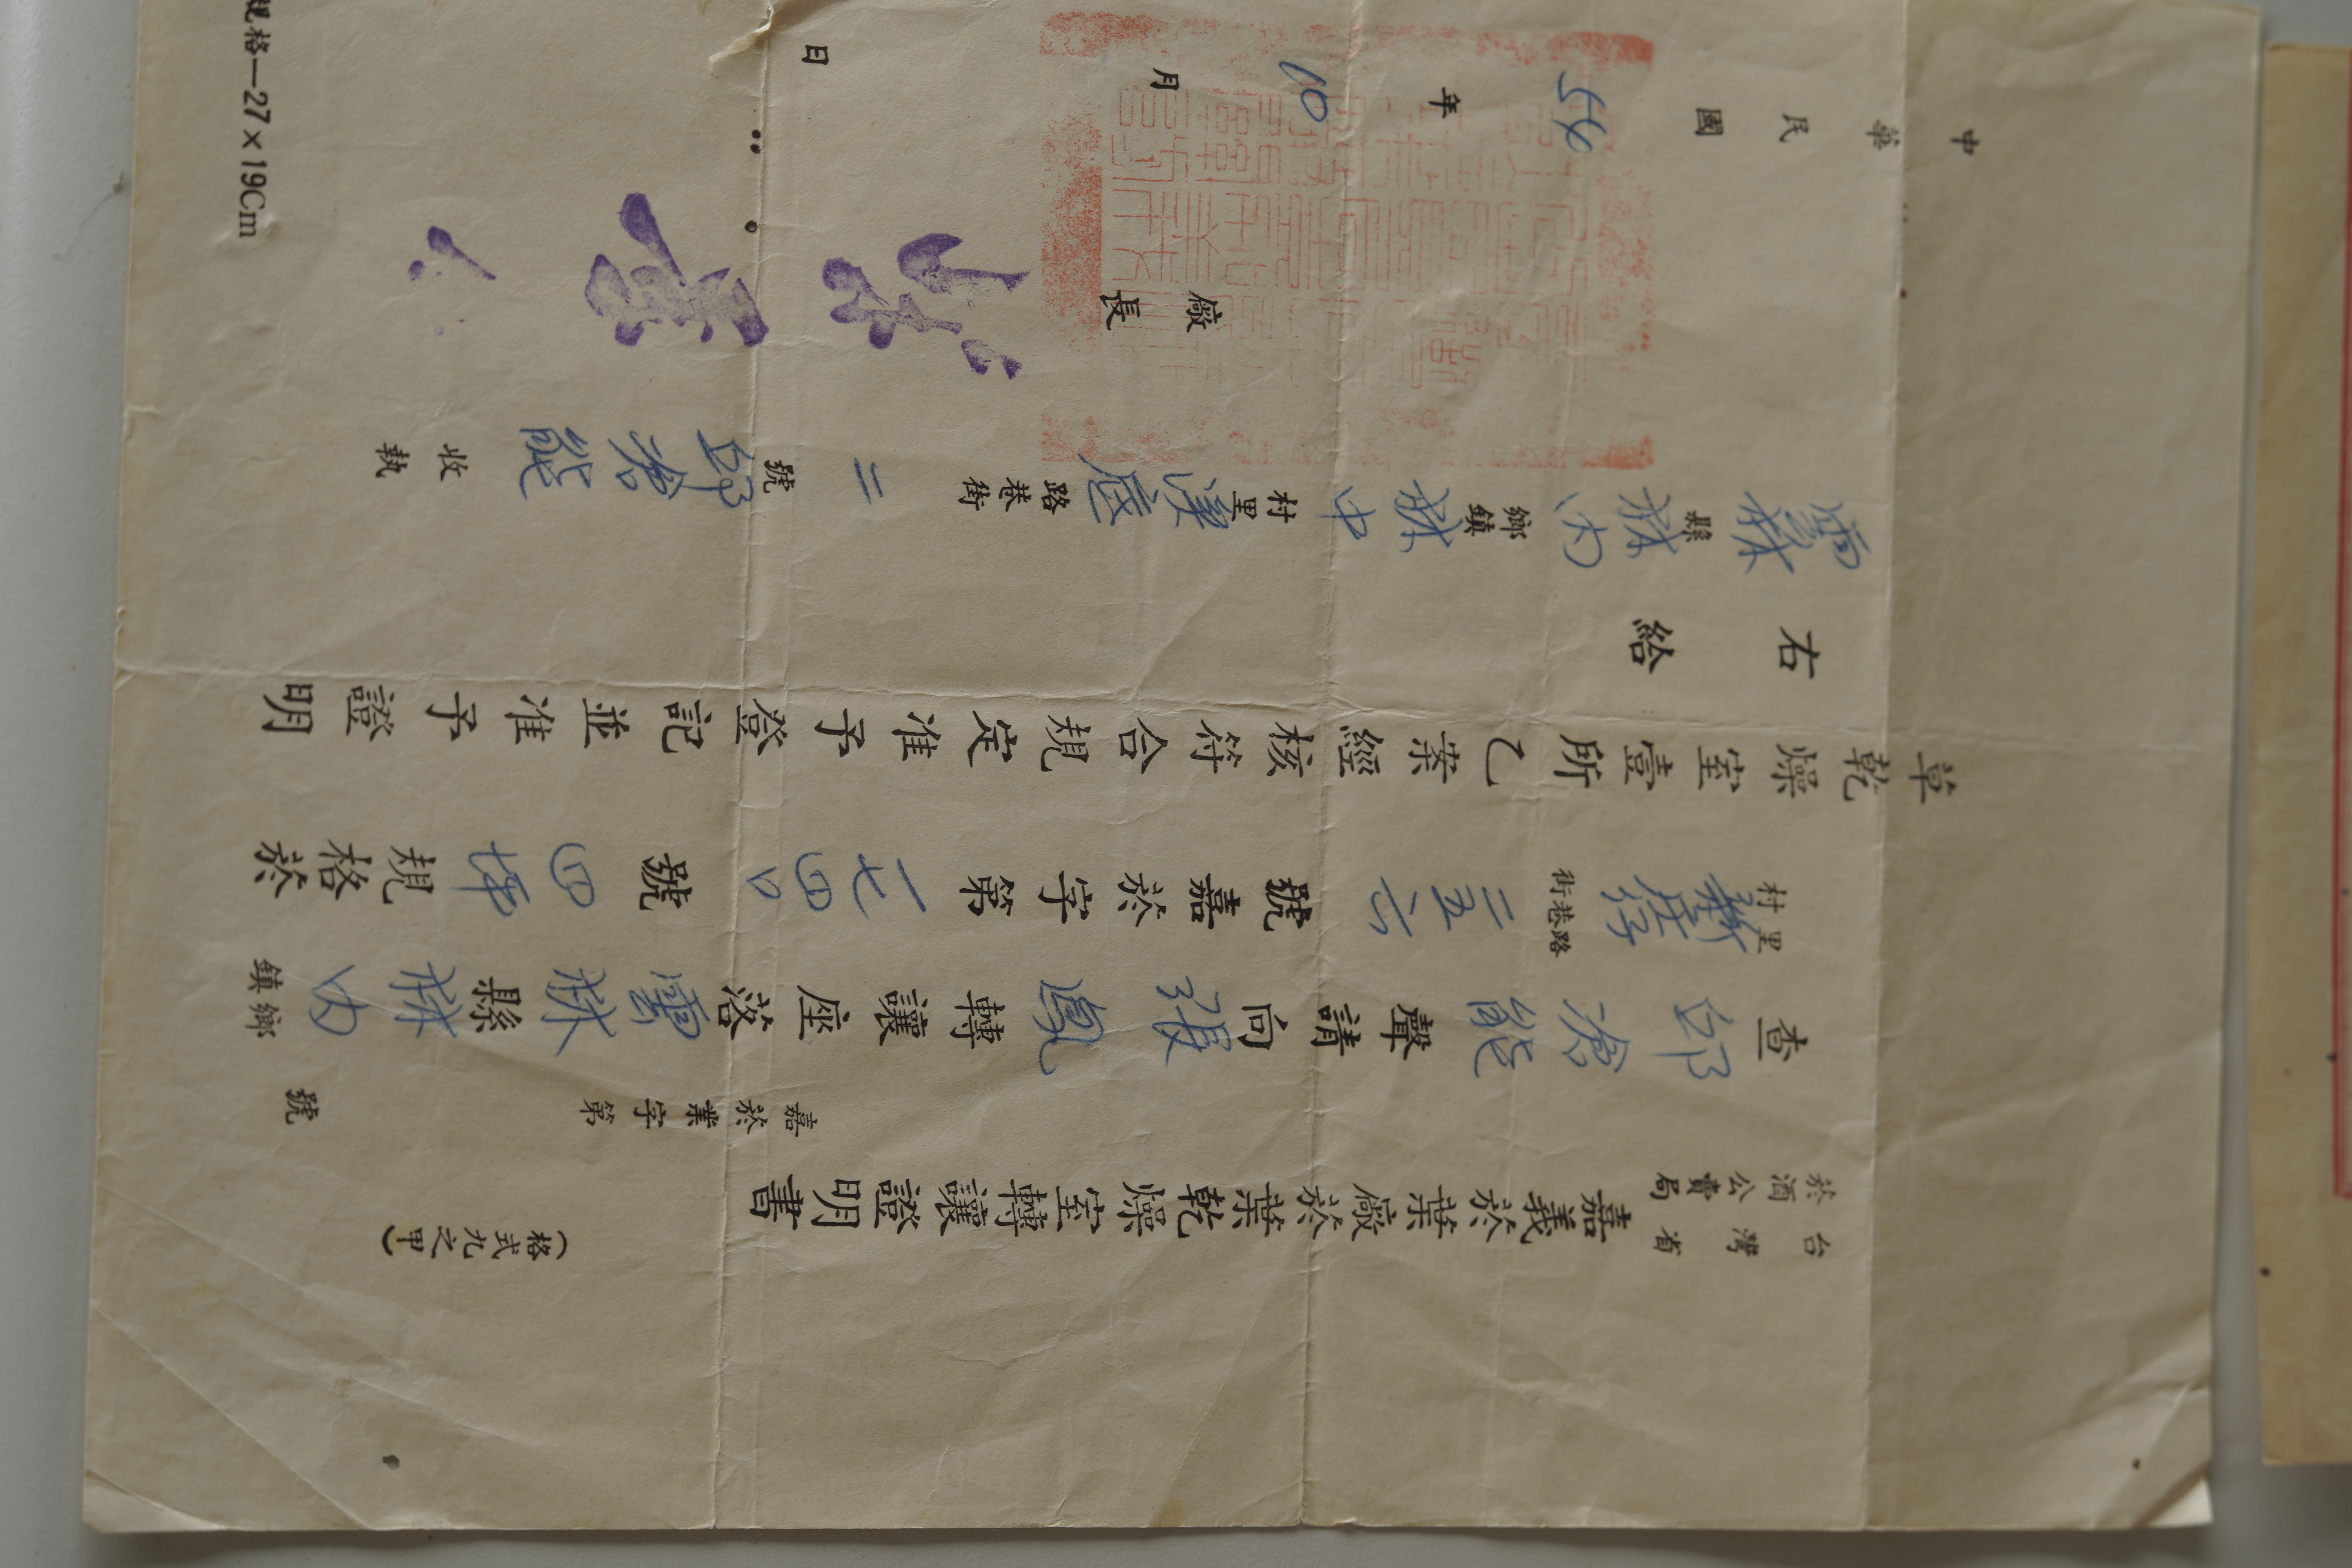 (格式九之甲)
台灣省
菸酒公賣局
嘉義菸葉廠菸葉乾燥室轉讓證明書
嘉菸業字第 號
查邱滄能聲請向張鳳轉讓座落雲林縣林內鎮鄉
村里 街巷路 二五六號嘉菸字第一七四〇號四坪規格菸
草乾燥室壹所乙案經核符合規定准予登記並准予證明
右給
雲林縣林內鄉鎮林中村里溪底路巷街二號邱滄能收執
廠長
中華民國56年10月 日
規格—27×19Cm